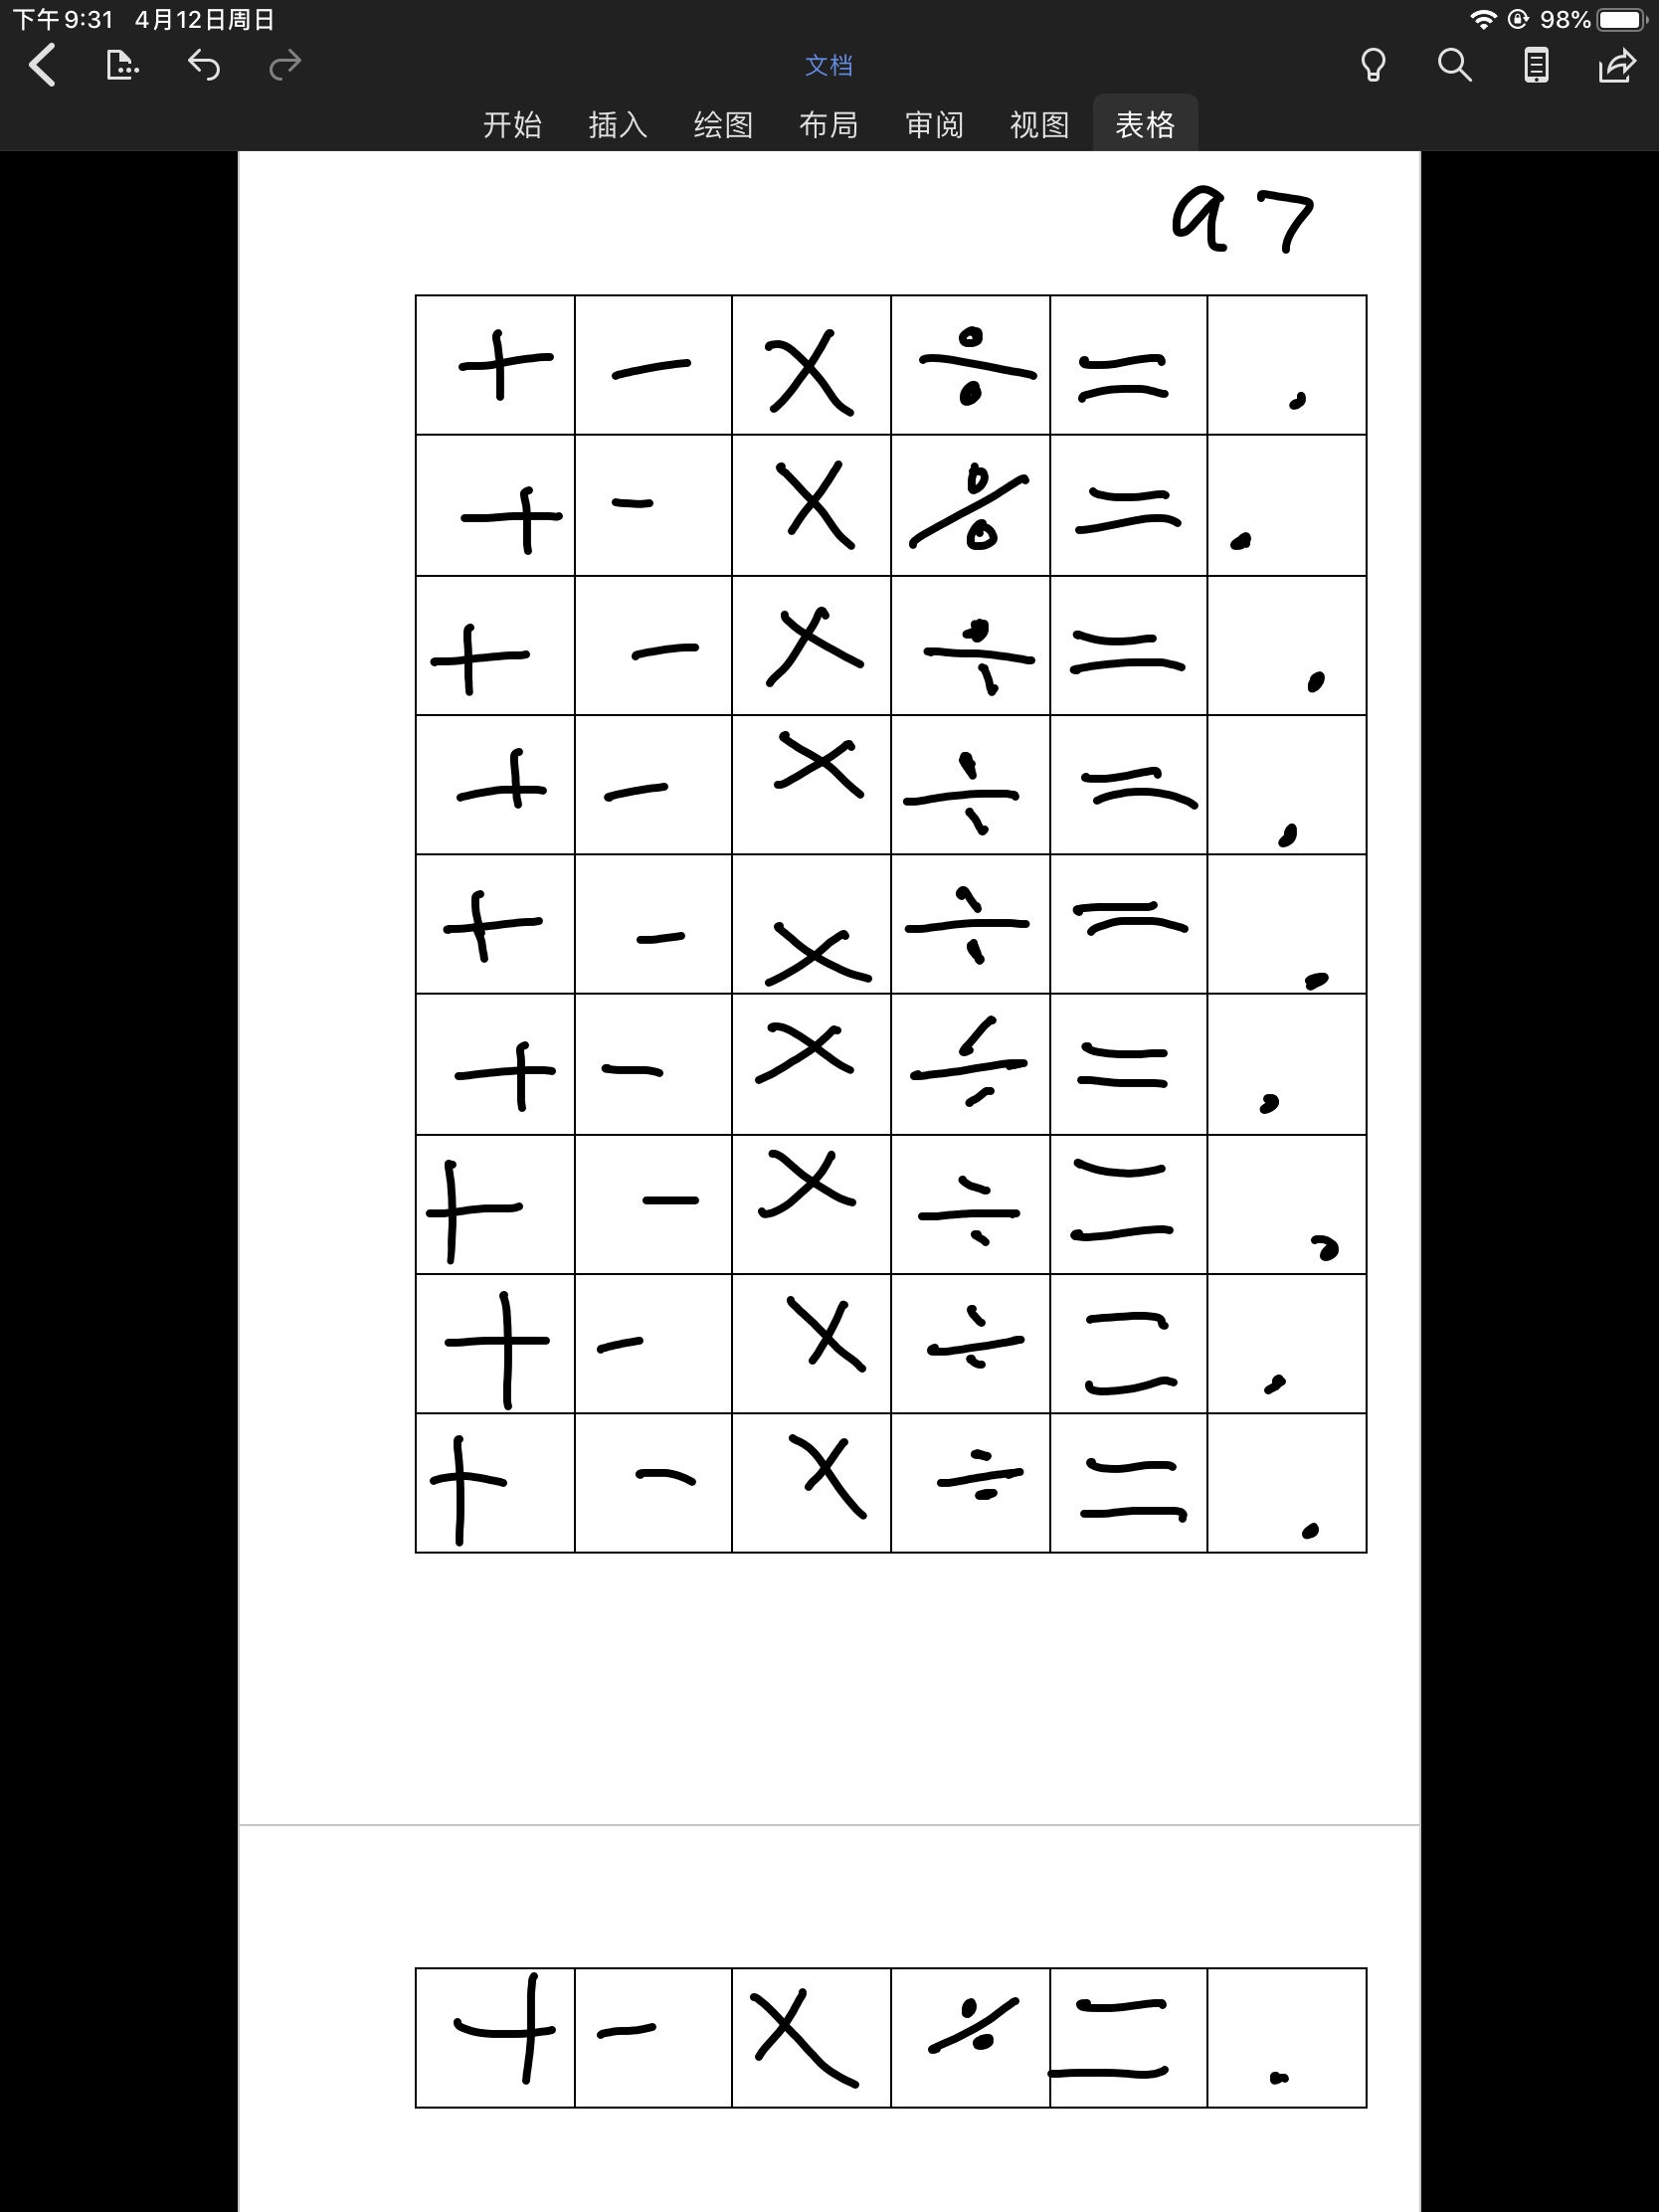 下午9:31 4月12日周日 98%
文档
开始 插入 绘图 布局 审阅 视图 表格
a7
+ − × ÷ = .
+ − × ÷ = .
+ − × ÷ = .
+ − × ÷ = .
+ − × ÷ = .
+ − × ÷ = .
+ − × ÷ = .
+ − × ÷ = .
+ − × ÷ = .
+ − × ÷ = .